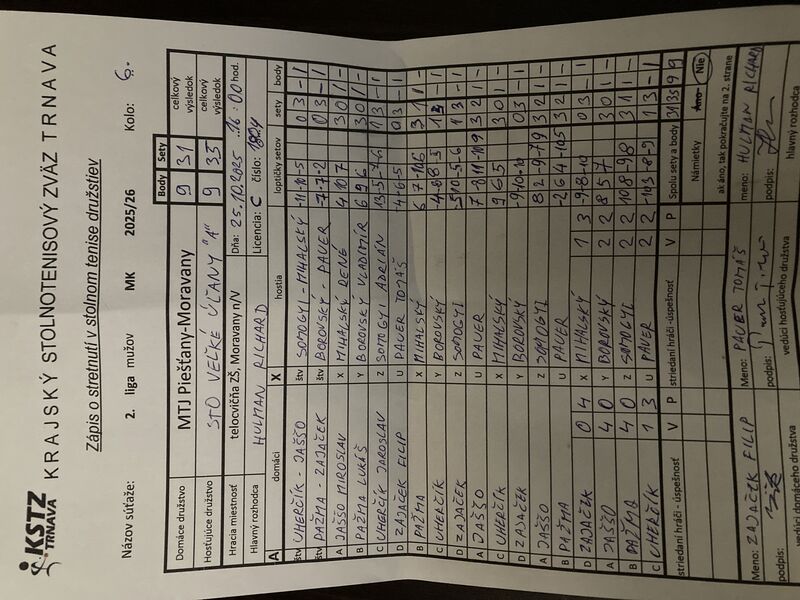 KSTZ
TRNAVA
KRAJSKÝ STOLNOTENISOVÝ ZVÄZ TRNAVA
Zápis o stretnutí v stolnom tenise družstiev
Názov súťaže: 2. liga mužov MK 2025/26 Kolo: 6.
Body Sety
Domáce družstvo MTJ Piešťany-Moravany 9 31 celkový výsledok
Hosťujúce družstvo STO VEĽKÉ ÚĽANY "A" 9 35 celkový výsledok
Hracia miestnosť telocvičňa ZŠ, Moravany n/V Dňa: 25.10.2025 16:00 hod.
Hlavný rozhodca HULMAN RICHARD Licencia: C číslo:
A domáci X hostia loptičky setov sety body
štv UHERČÍK - JAŠŠO štv SOMOGYI - MIHALSKÝ -11 -10 -5 0 3 - 1
štv PAŽMA - ZAJAČEK štv BOROVSKÝ - PAUER -7 -7 -2 0 3 - 1
A JAŠŠO MIROSLAV X MIHALSKÝ RENÉ 4 10 7 3 0 1 -
B PAŽMA LUKÁŠ Y BOROVSKÝ VLADIMÍR 6 9 6 3 0 1 -
C UHERČÍK JAROSLAV Z SOMOGYI ADRIÁN 13 -5 -7 -6 1 3 - 1
D ZAJAČEK FILIP U PAUER TOMÁŠ -4 -6 -5 0 3 - 1
B PAŽMA X MIHALSKÝ 3 1 1 -
C UHERČÍK Y BOROVSKÝ 1 3 - 1
D ZAJAČEK Z SOMOGYI -5 10 -5 -6 1 3 - 1
A JAŠŠO U PAUER 3 2 1 -
C UHERČÍK X MIHALSKÝ 9 6 5 3 0 1 -
D ZAJAČEK Y BOROVSKÝ -9 -10 -10 0 3 - 1
A JAŠŠO Z SOMOGYI 8 2 -9 -7 9 3 2 1 -
B PAŽMA U PAUER 3 2 1 -
D ZAJAČEK 0 4 X MIHALSKÝ 1 3 -9 -8 -10 0 3 - 1
A JAŠŠO 4 0 Y BOROVSKÝ 2 2 8 5 7 3 0 1 -
B PAŽMA 4 0 Z SOMOGYI 2 2 10 8 -9 8 3 1 1 -
C UHERČÍK 1 3 U PAUER 2 2 1 3 - 1
striedaní hráči - úspešnosť V P striedaní hráči -úspešnosť V P Spolu sety a body 31 35 9 9
Námietky Áno - Nie
ak áno, tak pokračujte na 2. strane
Meno: ZAJAČEK FILIP Meno: PAUER TOMÁŠ meno: HULMAN RICHARD
podpis: podpis: podpis:
vedúci domáceho družstva vedúci hosťujúceho družstva hlavný rozhodca